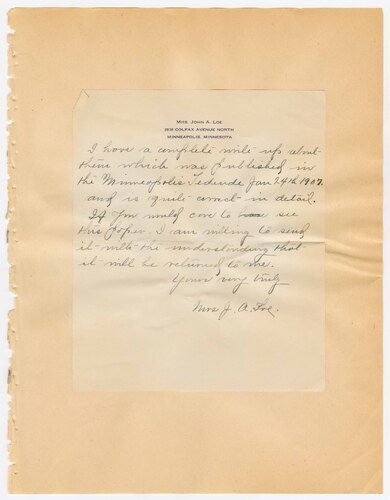 MRS. JOHN A. LOE
1618 COLFAX AVENUE NORTH
MINNEAPOLIS, MINNESOTA
I have a complete write up about
them which was published in
the Minneapolis Tidende Jan 24th 1907.
and is quite correct in detail.
If you would care to see
this paper. I am willing to send
it with the understanding that
it will be returned to me.
Yours very truly
Mrs J. A. Loe.